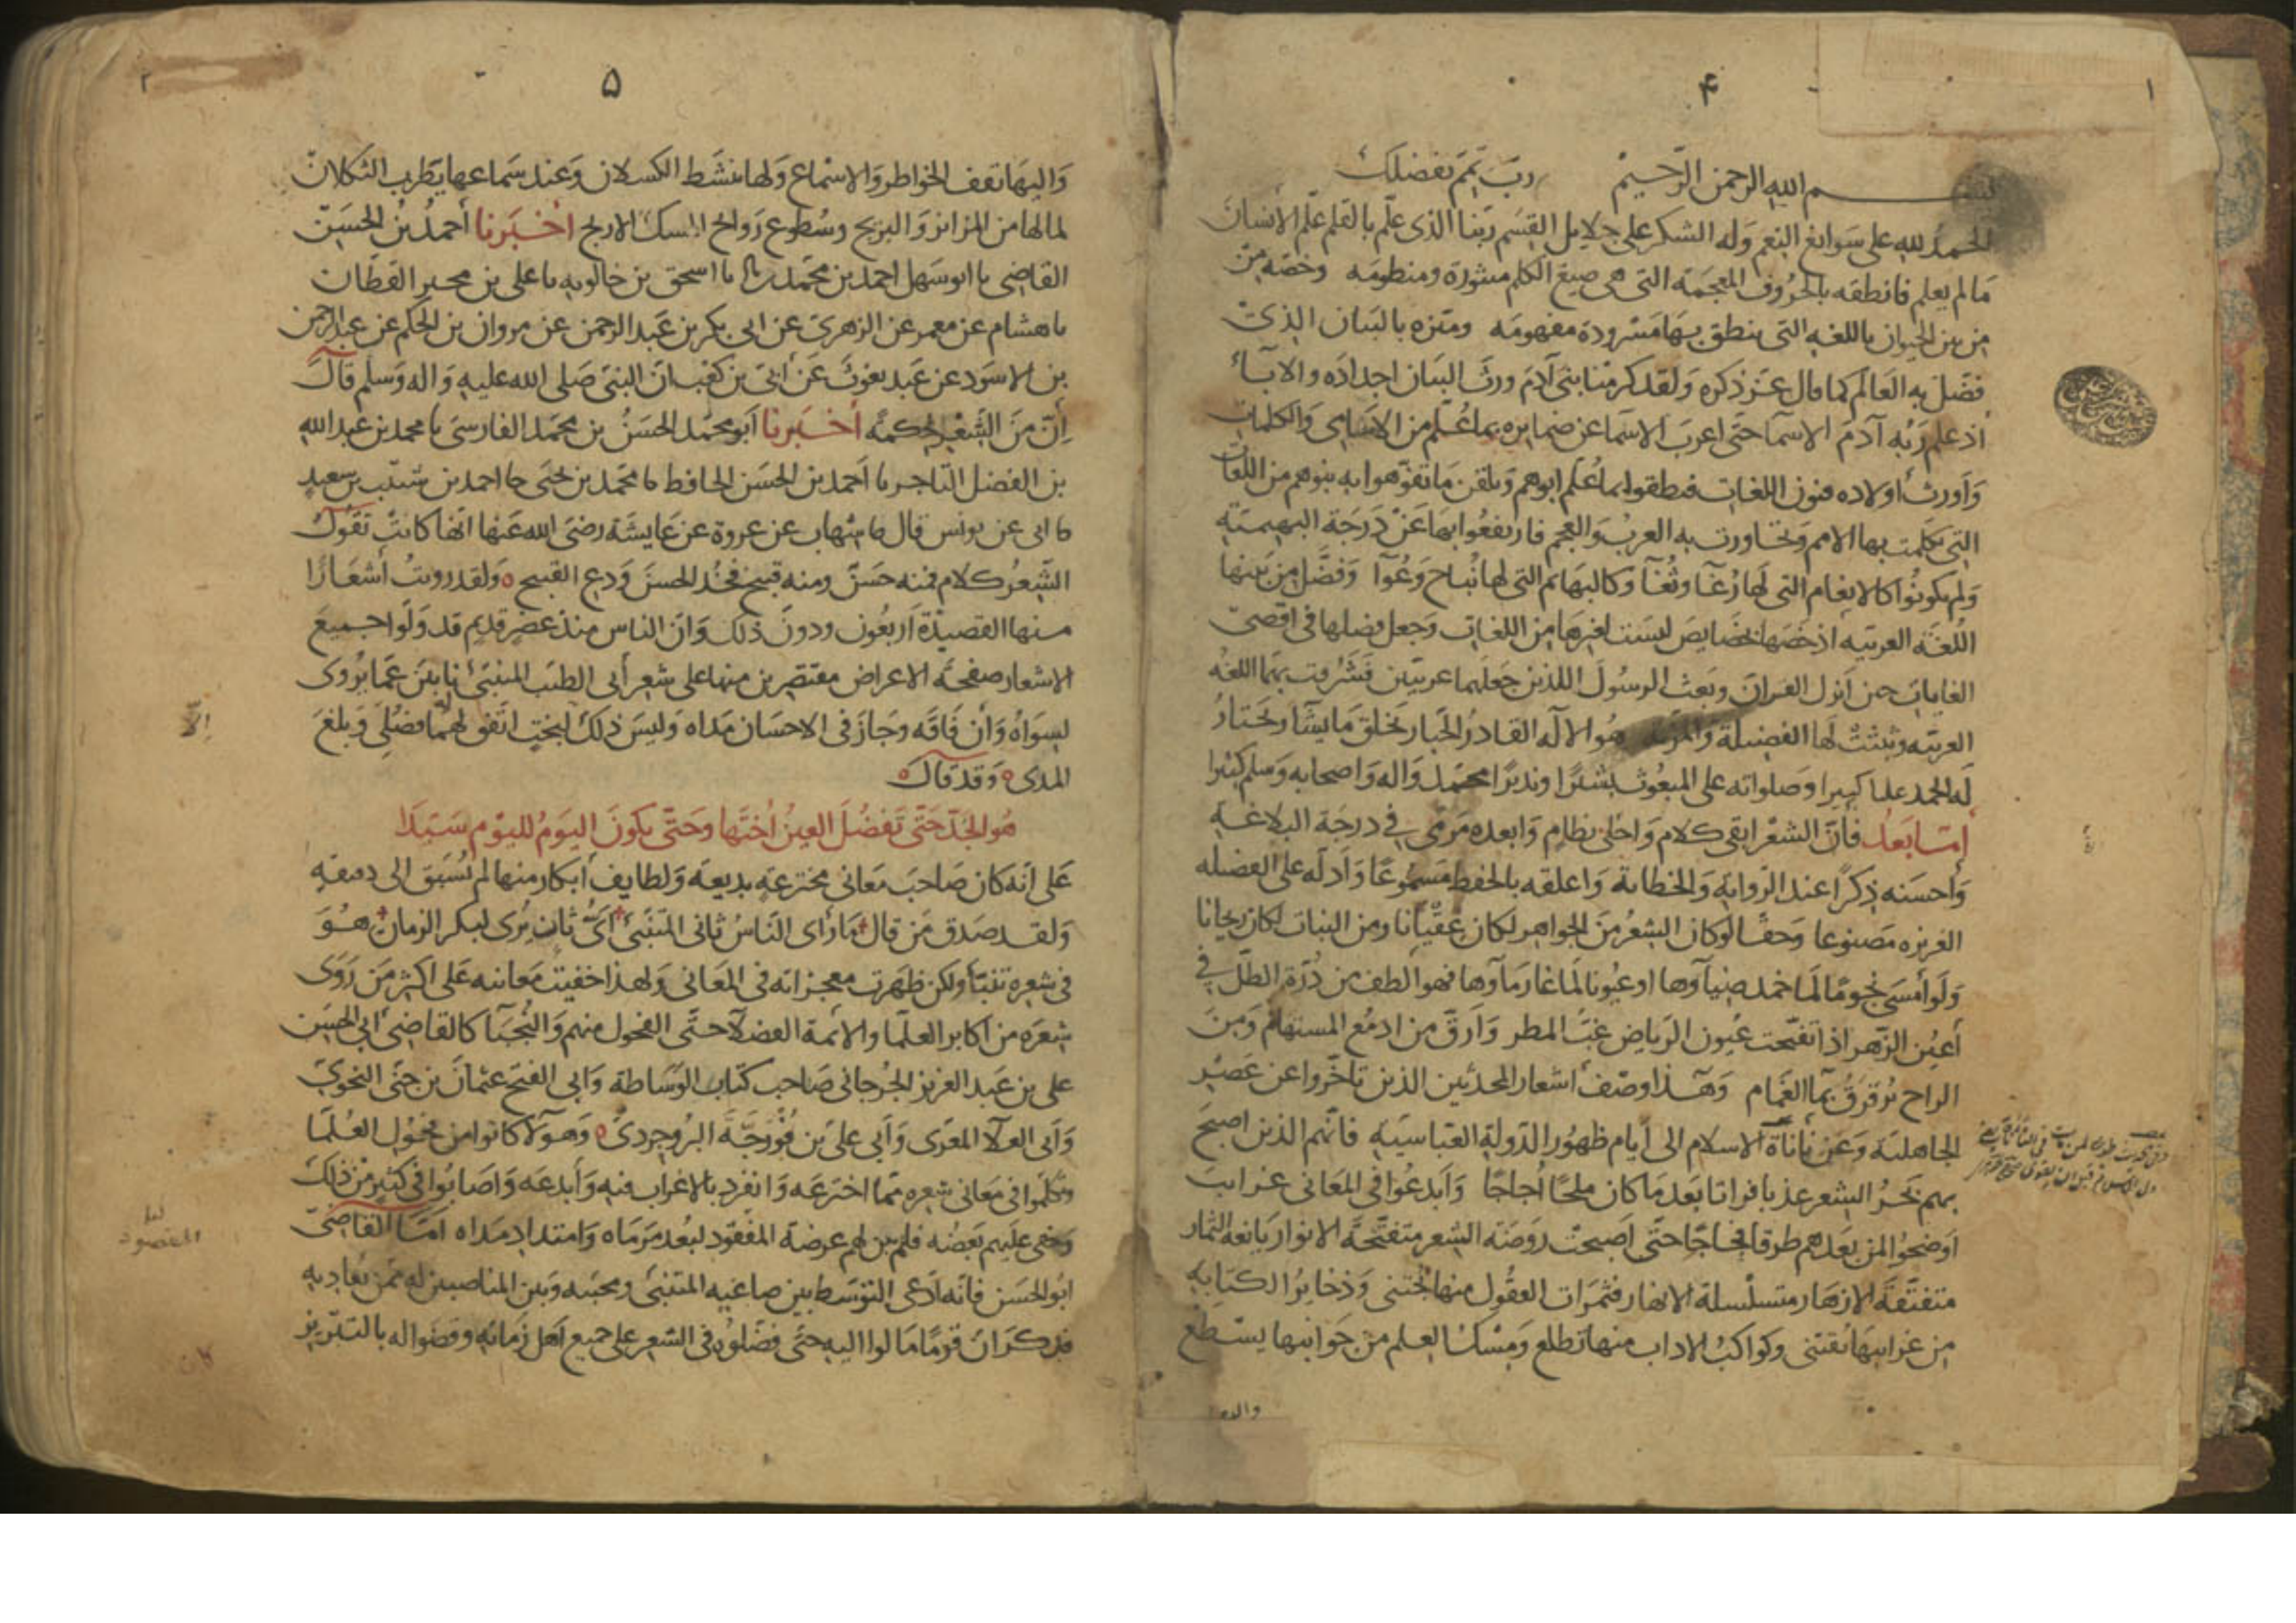 ۴
١
بسم الله الرحمن الرحيم رب تمم بفضلك
الحمد لله على سوابغ النعم وله الشكر على جلايل القسم ربنا الذى علم بالقلم علم الانسان
مالم يعلم فانطقه بالحروف المعجمة التى هى صيغ الكلم منثورة ومنظومه وخصه من
من بين الحيوان باللغه التى ينطق بها مسرودة مفهومه وميزه بالبيان الذى
فضل به العالم كما قال عز ذكره ولقد كرمنا بنى آدم ورث البيان اجداده والاباء
اذ علم ربه آدم الاسما حتى اعرب الاسما عن ضمايره بما علم من الاسامى والكلمات
واورث اولاده فنون اللغات فنطقوا بما علم ابوهم وتلقن ما تفوهوا به بنوهم من اللغات
التى تكلمت بها الامم وتحاورت به العرب والعجم فارتفعوا بها عن درجة البهيمية
ولم يكونوا كالانعام التى لها رغا وثغا وكالبهائم التى لها نباح وعوا وفضل من بينها
اللغة العربيه اذ خصها بخصايص ليست لغيرها من اللغات وجعل فضلها فى اقصى
الغايات حين انزل القران وبعث الرسول اللذين جعلهما عربيين فشرفت بهما اللغه
العربيه وثبتت لها الفضيلة والمزيه هو الاله القادر الجبار يخلق ما يشا ويختار
له الحمد عليا كبيرا وصلواته على المبعوث بشيرا ونذيرا محمد واله واصحابه وسلم كثيرا
اما بعد فان الشعر ابقى كلام واحلى نظام وابعده مرمى في درجة البلاغه
واحسنه ذكرا عند الروايه والخطابة واعلقه بالحفظ مسموعا وادله على الفضيله
الغريزه مصنوعا وحقا لو كان الشعر من الجواهر لكان عقيانا ومن النبات لكان ريحانا
ولو امسى نجوما لما خمد ضياوها او عيونا لما غار ماوها فهو الطف من درة الطل في
أعين الزهر اذا تفتحت عيون الرياض غب المطر وارق من ادمع المستهام ومن
الراح ترقرق بما الغمام وهذا وصف أشعار المحدثين الذين تاخروا عن عصر
الجاهلية وعن نأنأة الاسلام الى ايام ظهور الدولة العباسيه فانهم الذين اصبح
بهم بحر الشعر عذبا فراتا بعد ما كان ملحا أجاجا وابدعوا في المعانى غرايب
اوضحوا لمن بعدهم طرقا فجاجا حتى اصبحت روضة الشعر متفتحة الانوار يانعة الثمار
متفتقة الازهار متسلسلة الانهار فثمرات العقول منها تجتنى وذخاير الكتابه
من غرايبها تقتنى وكواكب الاداب منها تطلع ومسك العلم من جوانبها يسطع
۵
٢
واليها تقف الخواطر والاسماع ولها ينشط الكسلان وعند سماعها يطرب الثكلان
لما لها من المزايز والبريح وسطوع روايح المسك الاريج أخبرنا أحمد بن الحسين
القاضى نا ابو سهل احمد بن محمد نا اسحق بن خالويه نا على بن محبر القطان
نا هشام عن معمر عن الزهرى عن ابى بكر بن عبد الرحمن عن مروان بن الحكم عن عبد الرحمن
بن الاسود عن عبد يغوث عن أبى بن كعب ان النبى صلى الله عليه واله وسلم قال
إن من الشعر لحكمة أخبرنا أبو محمد الحسن بن محمد الفارسى نا محمد بن عبد الله
بن الفضل التاجر نا أحمد بن الحسن الحافظ نا محمد بن يحيى نا احمد بن شبيب بن سعيد
نا ابى عن يونس قال نا شهاب عن عروة عن عايشة رضى الله عنها انها كانت تقول
الشعر كلام فمنه حسن ومنه قبيح فخذ الحسن ودع القبيح ولقد رويت أشعارا
منها القصيدة أربعون ودون ذلك وان الناس منذ عصر قديم قد ولوا جميع
الاشعار صفحة الاعراض مقتصرين منها على شعر أبى الطيب المتنبئ نابين عما يروى
لسواه وأن فاقه وجاز فى الاحسان مداه وليس ذلك لبخت اتفق لهما فضلى وبلغ
المدى وقد قال
هو الجد حتى تفضل العين أختها وحتى يكون اليوم لليوم سيدا
على انه كان صاحب معانى مخترعه بديعه ولطايف أبكار منها لم تسبق الى دمعه
ولقد صدق من قال ما رأى الناس ثانى المتنبئ أى ثان يرى لبكر الزمان هو
فى شعره تنبأ ولكن ظهرت معجزاته فى المعانى ولهذا خفيت معانيه على اكثر من روى
شعره من اكابر العلما والائمة الفضلا حتى الفحول منهم والنجبا كالقاضى أبى الحسن
على بن عبد العزيز الجرجانى صاحب كتاب الوساطة وابى الفتح عثمان بن جنى النحوى
وأبى العلا المعرى وأبى على بن فورجة البروجردى وهؤلا كانوا من فحول العلما
وتكلموا فى معانى شعره مما اخترعه وانفرد بالاغراب فيه وأبدعه واصابوا فى كثير من ذلك
وخفى عليهم بعضه فلم يبن لهم غرضة المقصود لبعد مرماه وامتداد مداه اما القاضى
ابو الحسن فانه ادعى التوسط بين صاغيه المتنبى ومحبيه وبين المناصبين له ممن يعاديه
فذكر ان قوما مالوا اليه حتى فضلوه فى الشعر على جميع اهل زمانه وقضوا له بالتبريز